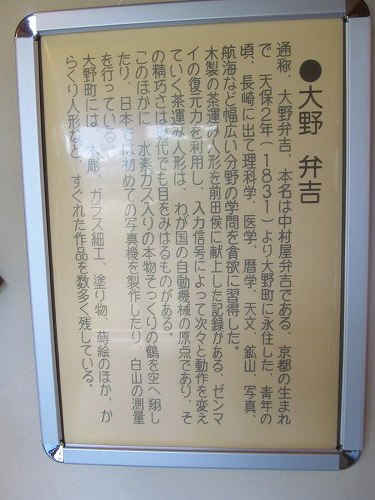 ●大野 弁吉
通称、大野弁吉、本名は中村屋弁吉である、京都の生まれ
で、天保2年(1831)より大野町に永住した、青年の
頃、長崎に出て理科学、医学、暦学、天文、鉱山、写真、
航海など幅広い分野の学問を貪欲に習得した。
木製の茶運み人形を前田侯に献上した記録がある、ゼンマ
イの復元力を利用し、入力信号によって次々と動作を変え
ていく茶運み人形は、わが国の自動機械の原点であり、そ
の精巧さは現代でも目をみはるものがある。
このほかに、水素ガス入りの本物そっくりの鶴を空へ翔し
たり、日本では初めての写真機を製作したり、白山の測量
を行っている。
大野町には、木彫、ガラス細工、塗り物、蒔絵のほか、か
らくり人形など、すぐれた作品を数多く残している。